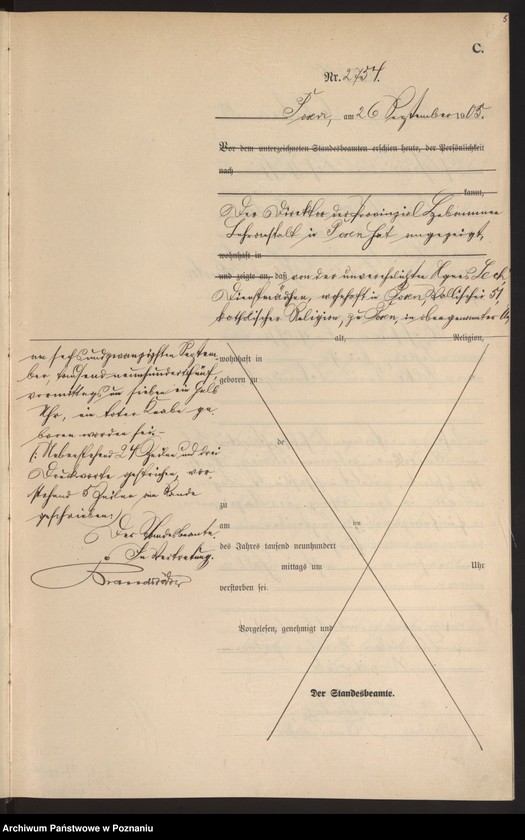 5
C.
Nr. 2757.
Posen, am 26 September 1905.
Vor dem unterzeichneten Standesbeamten erschien heute, der Persönlichkeit
nach
kannt,
Der Direktor der Provinzial Hebammen
Lehranstalt in Posen hat angezeigt,
wohnhaft in
und zeigte an, daß von der unverehelichten Agnes
Dienstmädchen, wohnhaft in Posen, 51,
katholischer Religion, zu Posen, in obengenannter
alt, Religion,
am sechsundzwanzigsten Septem-
ber, tausend neunhundertfünf,
vormittags um sieben ein halb
Uhr, ein toter Knabe ge-
boren worden sei.
(: Nebenstehend 24 Zeilen und drei
Druckworte gestrichen, vor-
stehend 5 Zeilen am Rande
geschrieben.)
Der Standesbeamte.
In Vertretung.
wohnhaft in
geboren zu
de
zu
am ten
des Jahres tausend neunhundert
mittags um Uhr
verstorben sei.
Vorgelesen, genehmigt und
Der Standesbeamte.
Archiwum Państwowe w Poznaniu